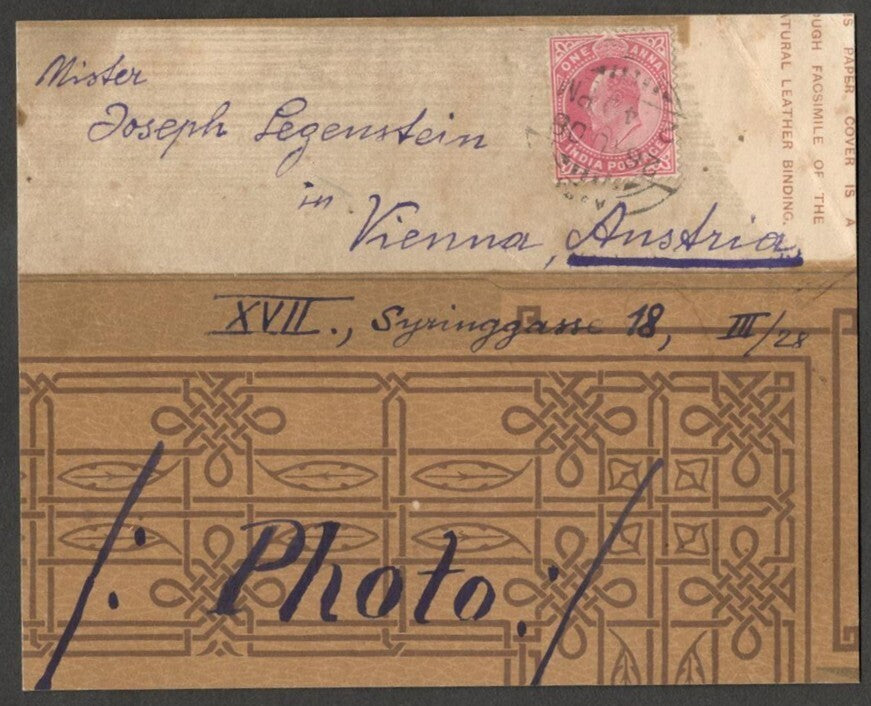 Mister
Joseph Legenstein
in
Vienna, Austria,
XVII., Syringgasse 18, III/28
/: Photo :/
ONE ANNA
INDIA POSTAGE
S PAPER COVER IS A
OUGH FACSIMILE OF THE
ATURAL LEATHER BINDING.